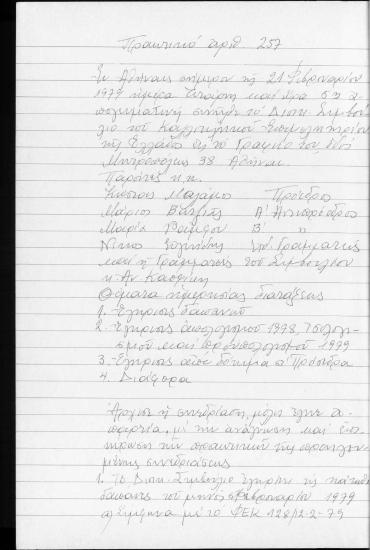 Πρακτικό αριθ. 257
Εν Αθήναις σήμερον τη 21 Φεβρουαρίου
1979 ημέρα Τετάρτη και ώρα 6η α-
πογευματινή συνήλθε το Διοικ. Συμβού-
λιο του Καλλιτεχνικού Επιμελητηρίου
της Ελλάδος εις το Γραφείο του, οδός
Μητροπόλεως 38 Αθήναι.
Παρόντες κ.κ.
Κώστας Μαλάμος Πρόεδρος
Μάριος Βατζιάς Α' Αντιπρόεδρος
Μαρία Β' "
Νίκος Γραμματεύς
και η Γραμματεύς του Συμβουλίου
κ. Αν.
Θέματα ημερησίας διατάξεως
1. Έγκρισις δαπανών
2. Έγκρισις απολογισμού 1978, Ισολογι-
σμού και προϋπολογισμού 1979
3. Έγκρισις Πρόεδρο
4. Διάφορα
Άρχισε η συνεδρίαση, μόλις έγινε α-
παρτία, με την ανάγνωση και επι-
κύρωση των πρακτικών της προηγου-
μένης συνεδριάσεως
1. Το Διοικ. Συμβούλιο ενέκρινε τις
δαπάνες του μηνός Φεβρουαρίου 1979
σύμφωνα με το ΦΕΚ 128/2-2-79